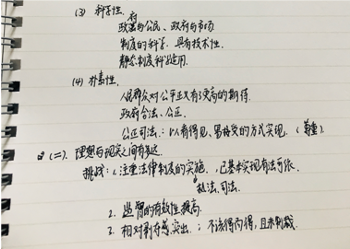 (3) 科学性.
政府与公民、政府与市场
制度的科学, 具有技术性.
静态制度科学运用.
(4) 朴素性.
人民群众对公平正义有了更高的期待.
政府合法、公正.
公正司法: 以看得见、易接受的方式实现. (尊重)
(二). 理想与现实之间有差距.
挑战: 1. 注重法律制度的实施. 已基本实现有法可依.
执法、司法.
2. 监管的有效性提高.
3. 相对剥夺感突出; 不该得而得, 且未制裁.